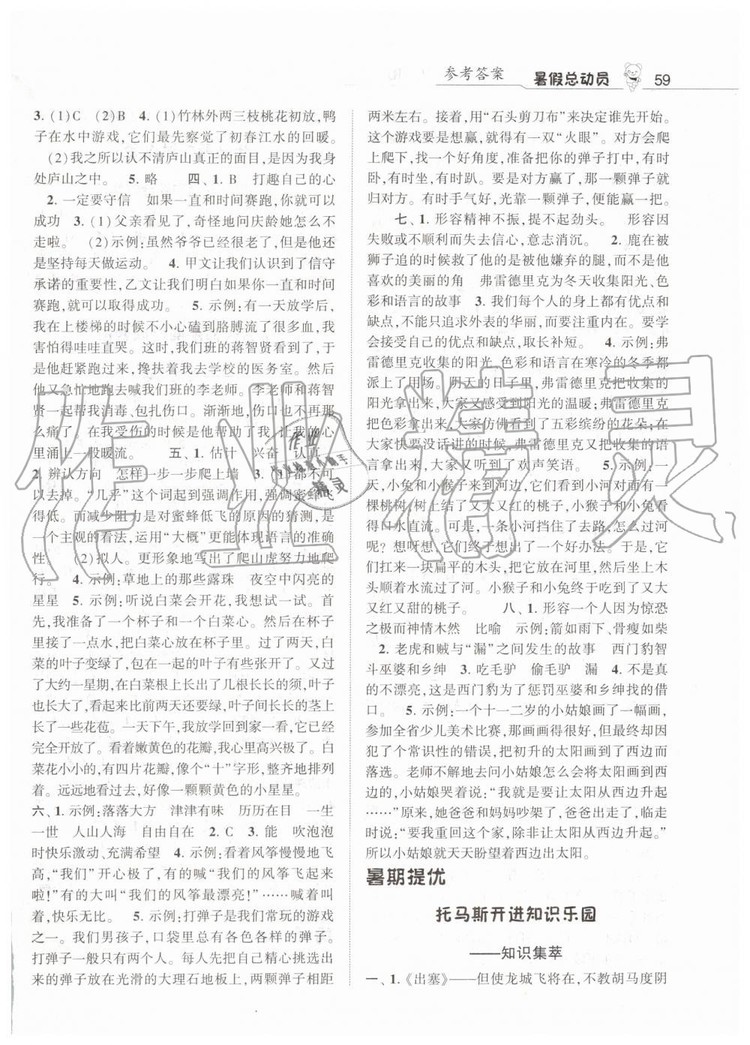 参考答案 暑假总动员 59
3. (1)C (2)B 4. (1)竹林外两三枝桃花初放,鸭
子在水中游戏,它们最先察觉了初春江水的回暖。
(2)我之所以认不清庐山真正的面目,是因为我身
处庐山之中。 5. 略 四、1. B 打趣自己的心
2. 一定要守信 如果一直和时间赛跑,你就可以
成功 3. (1)父亲看见了,奇怪地问庆龄她怎么不
走啦。 (2)示例:虽然爷爷已经很老了,但是他还
是坚持每天做运动。 4. 甲文让我们认识到了信守
承诺的重要性,乙文让我们明白如果一直和时间赛
跑,就可以取得成功。 5. 示例:有一次放学后,我
在上楼梯的时候不小心磕到胳膊流了很多血,我
害怕得哇哇直哭。这时,我们班的蒋智贤看到了,于
是他赶紧跑过来,搀扶着我去学校的医务室。然后
他又急忙地跑去喊我们班的李老师。李老师和蒋智
贤一起帮我消毒、包扎伤口。渐渐地,伤口也不再那
么痛了。在我受伤的时候是他帮助了我,让我的心
里涌上一股暖流。 五、1. 估计 兴奋 认真
2. 辨认方向 怎样一步一步爬上墙 3. (1)都不可
以去掉。“几乎”这个词起到强调作用,强调蜜蜂飞
得低。而减少阻力是对蜜蜂低飞的原因的猜测,是
一个主观的看法,运用“大概”更能体现语言的准确
性。 (2)拟人。更形象地写出了爬山虎努力地爬
行。 4. 示例:草地上的那些露珠 夜空中闪亮的
星星 5. 示例:听说白菜会开花,我想试一试。首
先,我准备了一个杯子和一个白菜心。然后在杯子
里接了一点水,把白菜心放在杯子里。过了两天,白
菜的叶子变绿了,包在一起的叶子有些张开了。又过
了大约一星期,在白菜根上长出了很嫩很嫩的叶子,叶子
也慢慢展开了,看起来比前两天还要大一些,还长出
一些小花苞。一天下午,我放学回到家一看,它已经
开花了。看着嫩黄色的花瓣,我别提有多高兴了。白
菜花小小的,有四片花瓣,像个“十”字形,整齐地排列
着。远远地看过去,好像一颗颗黄色的小星星。
六、1. 示例:落落大方 津津有味 历历在目 一生
一世 人山人海 自由自在 2. C 3. 能 吹泡泡
时快乐激动、充满希望 4. 示例:看着风筝慢慢地飞
高,“我们”开心极了,有的大喊“我们的风筝飞起来
啦!”有的大叫“我们的风筝最漂亮!”……喊着着
叫着,快乐无比。 5. 示例:打弹子是我们常玩的游戏
之一。我们男孩子,口袋里总有各色各样的弹子。
打弹子要在光滑的大理石地板上,两颗弹子间距
两米左右。接着,用“石头剪刀布”来决定谁先开始。
这个游戏要是想赢,就得有一双“火眼”。对方会爬
上爬下,有时会爬到角落,准备把你的弹子打中,有时
卧,有时坐,有时趴。要是对方赢了,那一颗弹子就
归对方。有时手气好,光是一颗弹子就能赢一把。
七、1. 形容精神不振,提不起劲头。 形容因
失败或不顺利而失去信心,意志消沉。 2. 鹿在被
狮子追的时候救了他的是被他嫌弃的腿,而不是他
喜欢的美丽的角 弗雷德里克为冬天收集阳光、色
彩和语言的故事 3. 我们每个人的身上都有优点和
缺点,不能只追求外表的华丽,而要注重实际。要学
会接受自己的优点和缺点,取长补短。 4. 示例:弗
雷德里克收集的阳光、色彩和语言在寒冷的冬季都
派上了用场。阴天的日子里,弗雷德里克把收集的
阳光拿来,大家又感受到了阳光的温暖;弗雷德里克
把收集的色彩拿来,大家仿佛看到了五彩缤纷的花朵;在
人们孤独寂寞时,弗雷德里克把收集的
话语拿来,大家又听到了欢声笑语。 5. 示例:一
天,小兔和小猴子来到了小河边,看到小河对面有一
棵桃树,树上结了又大又红的桃子,小猴子和小兔
口水直流。可是,一条小河挡住了去路,怎么过河
呢?小猴子和小兔想出了一个好办法。于是,
它们扛来一块扁平的木头,把它横在河上。它们走过
木头顺利通过了小河。小猴子和小兔终于吃到了又大
又红又甜的桃子。 八、1. 形容人因为惊恐
之极而神情木然 比喻 示例:箭如雨下、骨瘦如柴
2. 老虎和贼与“漏”之间发生的故事 西门豹智
斗巫婆和乡绅 3. 吃毛驴 偷毛驴 漏 4. 不是真
的不漂亮,这是西门豹为了惩罚巫婆和乡绅找的借
口。 5. 示例:一个十一二岁的小姑娘画了一幅画,
参加全省少儿美术比赛,那幅画画得很好,但最终却因
犯了个常识性的错误,把初升的太阳画到了西边而
落选。老师不解地问小姑娘怎么会将太阳画到西边
……”原来,她爸爸和妈妈吵架了,爸爸出走了,临走
时说:“要我重回这个家,除非让太阳从西边升起。”
所以小姑娘就天天盼望着西边出太阳。
暑期提优
托马斯开进知识乐园
——知识集萃
一、1.《出塞》——但使龙城飞将在,不教胡马度阴
作业精灵